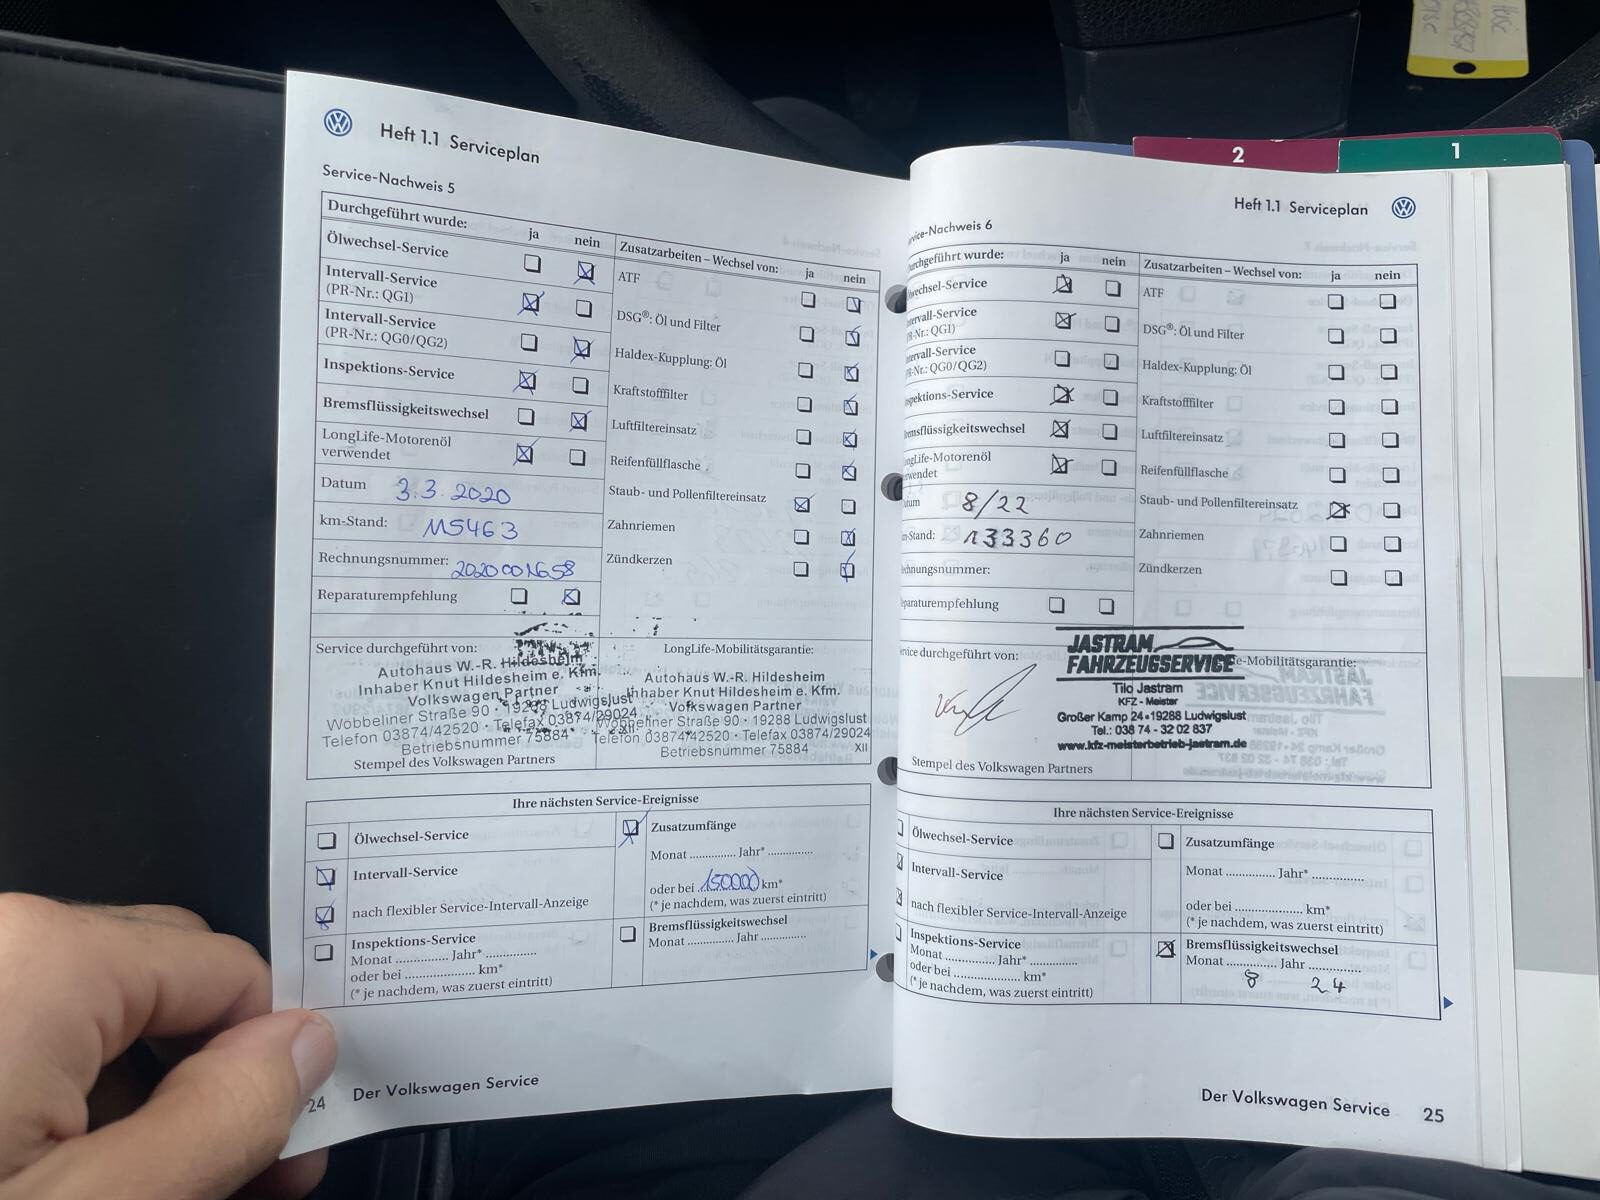 Heft 1.1 Serviceplan
Service-Nachweis 5
Durchgeführt wurde:
ja nein
Ölwechsel-Service
Intervall-Service
(PR-Nr.: QG1)
Intervall-Service
(PR-Nr.: QG0/QG2)
Inspektions-Service
Bremsflüssigkeitswechsel
LongLife-Motorenöl
verwendet
Datum 3.3.2020
km-Stand: 115463
Rechnungsnummer:
Reparaturempfehlung
Zusatzarbeiten – Wechsel von: ja nein
ATF
DSG®: Öl und Filter
Haldex-Kupplung: Öl
Kraftstofffilter
Luftfiltereinsatz
Reifenfüllflasche
Staub- und Pollenfiltereinsatz
Zahnriemen
Zündkerzen
Service durchgeführt von:
Autohaus W.-R. Hildesheim
Inhaber Knut Hildesheim e. Kfm.
Volkswagen Partner
Wöbbeliner Straße 90 · 19288 Ludwigslust
Telefon 03874/42520 · Telefax 03874/29024
Betriebsnummer 75884
XII
Stempel des Volkswagen Partners
LongLife-Mobilitätsgarantie:
Autohaus W.-R. Hildesheim
Inhaber Knut Hildesheim e. Kfm.
Volkswagen Partner
Wöbbeliner Straße 90 · 19288 Ludwigslust
Telefon 03874/42520 · Telefax 03874/29024
Betriebsnummer 75884 XII
Ihre nächsten Service-Ereignisse
Ölwechsel-Service
Intervall-Service
nach flexibler Service-Intervall-Anzeige
Inspektions-Service
Monat .............. Jahr* ................
oder bei ..................... km*
(* je nachdem, was zuerst eintritt)
Zusatzumfänge
Monat .............. Jahr* ..............
oder bei 150000 km*
(* je nachdem, was zuerst eintritt)
Bremsflüssigkeitswechsel
Monat .............. Jahr ..............
24 Der Volkswagen Service
2
1
Heft 1.1 Serviceplan
vice-Nachweis 6
urchgeführt wurde:
ja nein
lwechsel-Service
tervall-Service
R-Nr.: QG1)
tervall-Service
R-Nr.: QG0/QG2)
spektions-Service
emsflüssigkeitswechsel
ongLife-Motorenöl
rwendet
atum 8/22
m-Stand: 133360
echnungsnummer:
eparaturempfehlung
Zusatzarbeiten – Wechsel von: ja nein
ATF
DSG®: Öl und Filter
Haldex-Kupplung: Öl
Kraftstofffilter
Luftfiltereinsatz
Reifenfüllflasche
Staub- und Pollenfiltereinsatz
Zahnriemen
Zündkerzen
rvice durchgeführt von:
e-Mobilitätsgarantie:
JASTRAM
FAHRZEUGSERVICE
Tilo Jastram
KFZ - Meister
Großer Kamp 24 • 19288 Ludwigslust
Tel.: 038 74 - 32 02 837
www.kfz-meisterbetrieb-jastram.de
Stempel des Volkswagen Partners
Ihre nächsten Service-Ereignisse
Ölwechsel-Service
Intervall-Service
nach flexibler Service-Intervall-Anzeige
Inspektions-Service
Monat .............. Jahr* ................
oder bei ..................... km*
(* je nachdem, was zuerst eintritt)
Zusatzumfänge
Monat .............. Jahr* ................
oder bei ..................... km*
(* je nachdem, was zuerst eintritt)
Bremsflüssigkeitswechsel
Monat .............. Jahr ................
8 24
Der Volkswagen Service 25